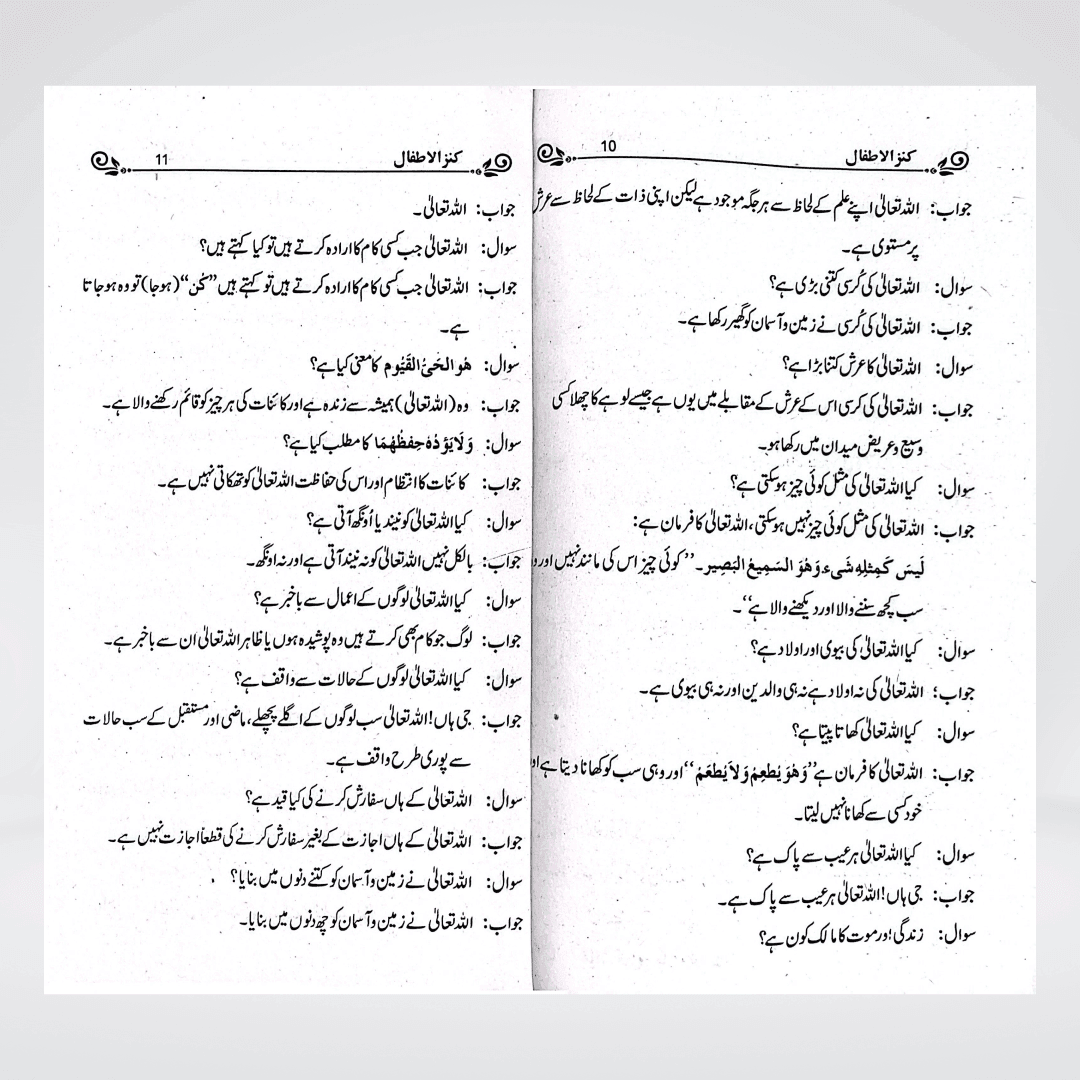 کنز الاطفال 10
جواب: اللہ تعالیٰ اپنے علم کے لحاظ سے ہر جگہ موجود ہے لیکن اپنی ذات کے لحاظ سے عرش
پر مستوی ہے۔
سوال: اللہ تعالیٰ کی کُرسی کتنی بڑی ہے؟
جواب: اللہ تعالیٰ کی کُرسی نے زمین و آسمان کو گھیر رکھا ہے۔
سوال: اللہ تعالیٰ کا عرش کتنا بڑا ہے؟
جواب: اللہ تعالیٰ کی کرسی اس کے عرش کے مقابلے میں یوں ہے جیسے لوہے کا چھلا کسی
وسیع و عریض میدان میں رکھا ہو۔
سوال: کیا اللہ تعالیٰ کی مثل کوئی چیز ہوسکتی ہے؟
جواب: اللہ تعالیٰ کی مثل کوئی چیز نہیں ہوسکتی، اللہ تعالیٰ کا فرمان ہے:
لَیسَ کَمِثلِهِ شَیء وَهُوَ السَمِیعُ البَصِیر۔ ’’کوئی چیز اس کی مانند نہیں اور
سب کچھ سننے والا اور دیکھنے والا ہے‘‘۔
سوال: کیا اللہ تعالیٰ کی بیوی اور اولاد ہے؟
جواب: اللہ تعالیٰ کی نہ اولاد ہے نہ ہی والدین اور نہ ہی بیوی ہے۔
سوال: کیا اللہ تعالیٰ کھاتا پیتا ہے؟
جواب: اللہ تعالیٰ کا فرمان ہے ’’وَهُوَ یُطعِمُ وَلاَ یُطعَمُ‘‘ اور وہی سب کو کھانا دیتا ہے
خود کسی سے کھانا نہیں لیتا۔
سوال: کیا اللہ تعالیٰ ہر عیب سے پاک ہے؟
جواب: جی ہاں! اللہ تعالیٰ ہر عیب سے پاک ہے۔
سوال: زندگی اور موت کا مالک کون ہے؟
کنز الاطفال 11
جواب: اللہ تعالیٰ۔
سوال: اللہ تعالیٰ جب کسی کام کا ارادہ کرتے ہیں تو کیا کہتے ہیں؟
جواب: اللہ تعالیٰ جب کسی کام کا ارادہ کرتے ہیں تو کہتے ہیں ’’کُن‘‘ (ہوجا) تو وہ ہوجاتا
ہے۔
سوال: هُو الحَیُّ القَیُّوم کا معنی کیا ہے؟
جواب: وہ (اللہ تعالیٰ) ہمیشہ سے زندہ ہے اور کائنات کی ہر چیز کو قائم رکھنے والا ہے۔
سوال: وَلَا یَؤدُہ حِفظُهُمَا کا مطلب کیا ہے؟
جواب: کائنات کا انتظام اور اس کی حفاظت اللہ تعالیٰ کو تھکاتی نہیں ہے۔
سوال: کیا اللہ تعالیٰ کو نیند یا اُونگھ آتی ہے؟
جواب: بالکل نہیں اللہ تعالیٰ کو نہ نیند آتی ہے اور نہ اونگھ۔
سوال: کیا اللہ تعالیٰ لوگوں کے اعمال سے باخبر ہے؟
جواب: لوگ جو کام بھی کرتے ہیں وہ پوشیدہ ہوں یا ظاہر اللہ تعالیٰ ان سے باخبر ہے۔
سوال: کیا اللہ تعالیٰ لوگوں کے حالات سے واقف ہے؟
جواب: جی ہاں! اللہ تعالیٰ سب لوگوں کے اگلے پچھلے، ماضی اور مستقبل کے سب حالات
سے پوری طرح واقف ہے۔
سوال: اللہ تعالیٰ کے ہاں سفارش کرنے کی کیا قید ہے؟
جواب: اللہ تعالیٰ کے ہاں اجازت کے بغیر سفارش کرنے کی قطعاً اجازت نہیں ہے۔
سوال: اللہ تعالیٰ نے زمین و آسمان کو کتنے دنوں میں بنایا؟
جواب: اللہ تعالیٰ نے زمین و آسمان کو چھ دنوں میں بنایا۔